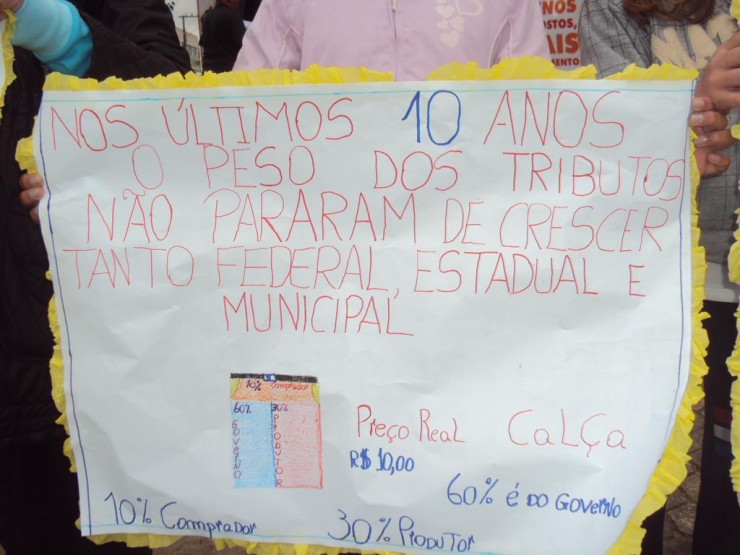 NOS
STOS,
AIS
MENTO
NOS ÚLTIMOS 10 ANOS
O PESO DOS TRIBUTOS
NÃO PARARAM DE CRESCER
TANTO FEDERAL, ESTADUAL E
MUNICIPAL
10% Comprador
60% 30%
GOVERNO
PRODUTOR
Preço Real CaLÇa
R$ 10,00
60% é Do Governo
10% Comprador
30% PRoDuToR